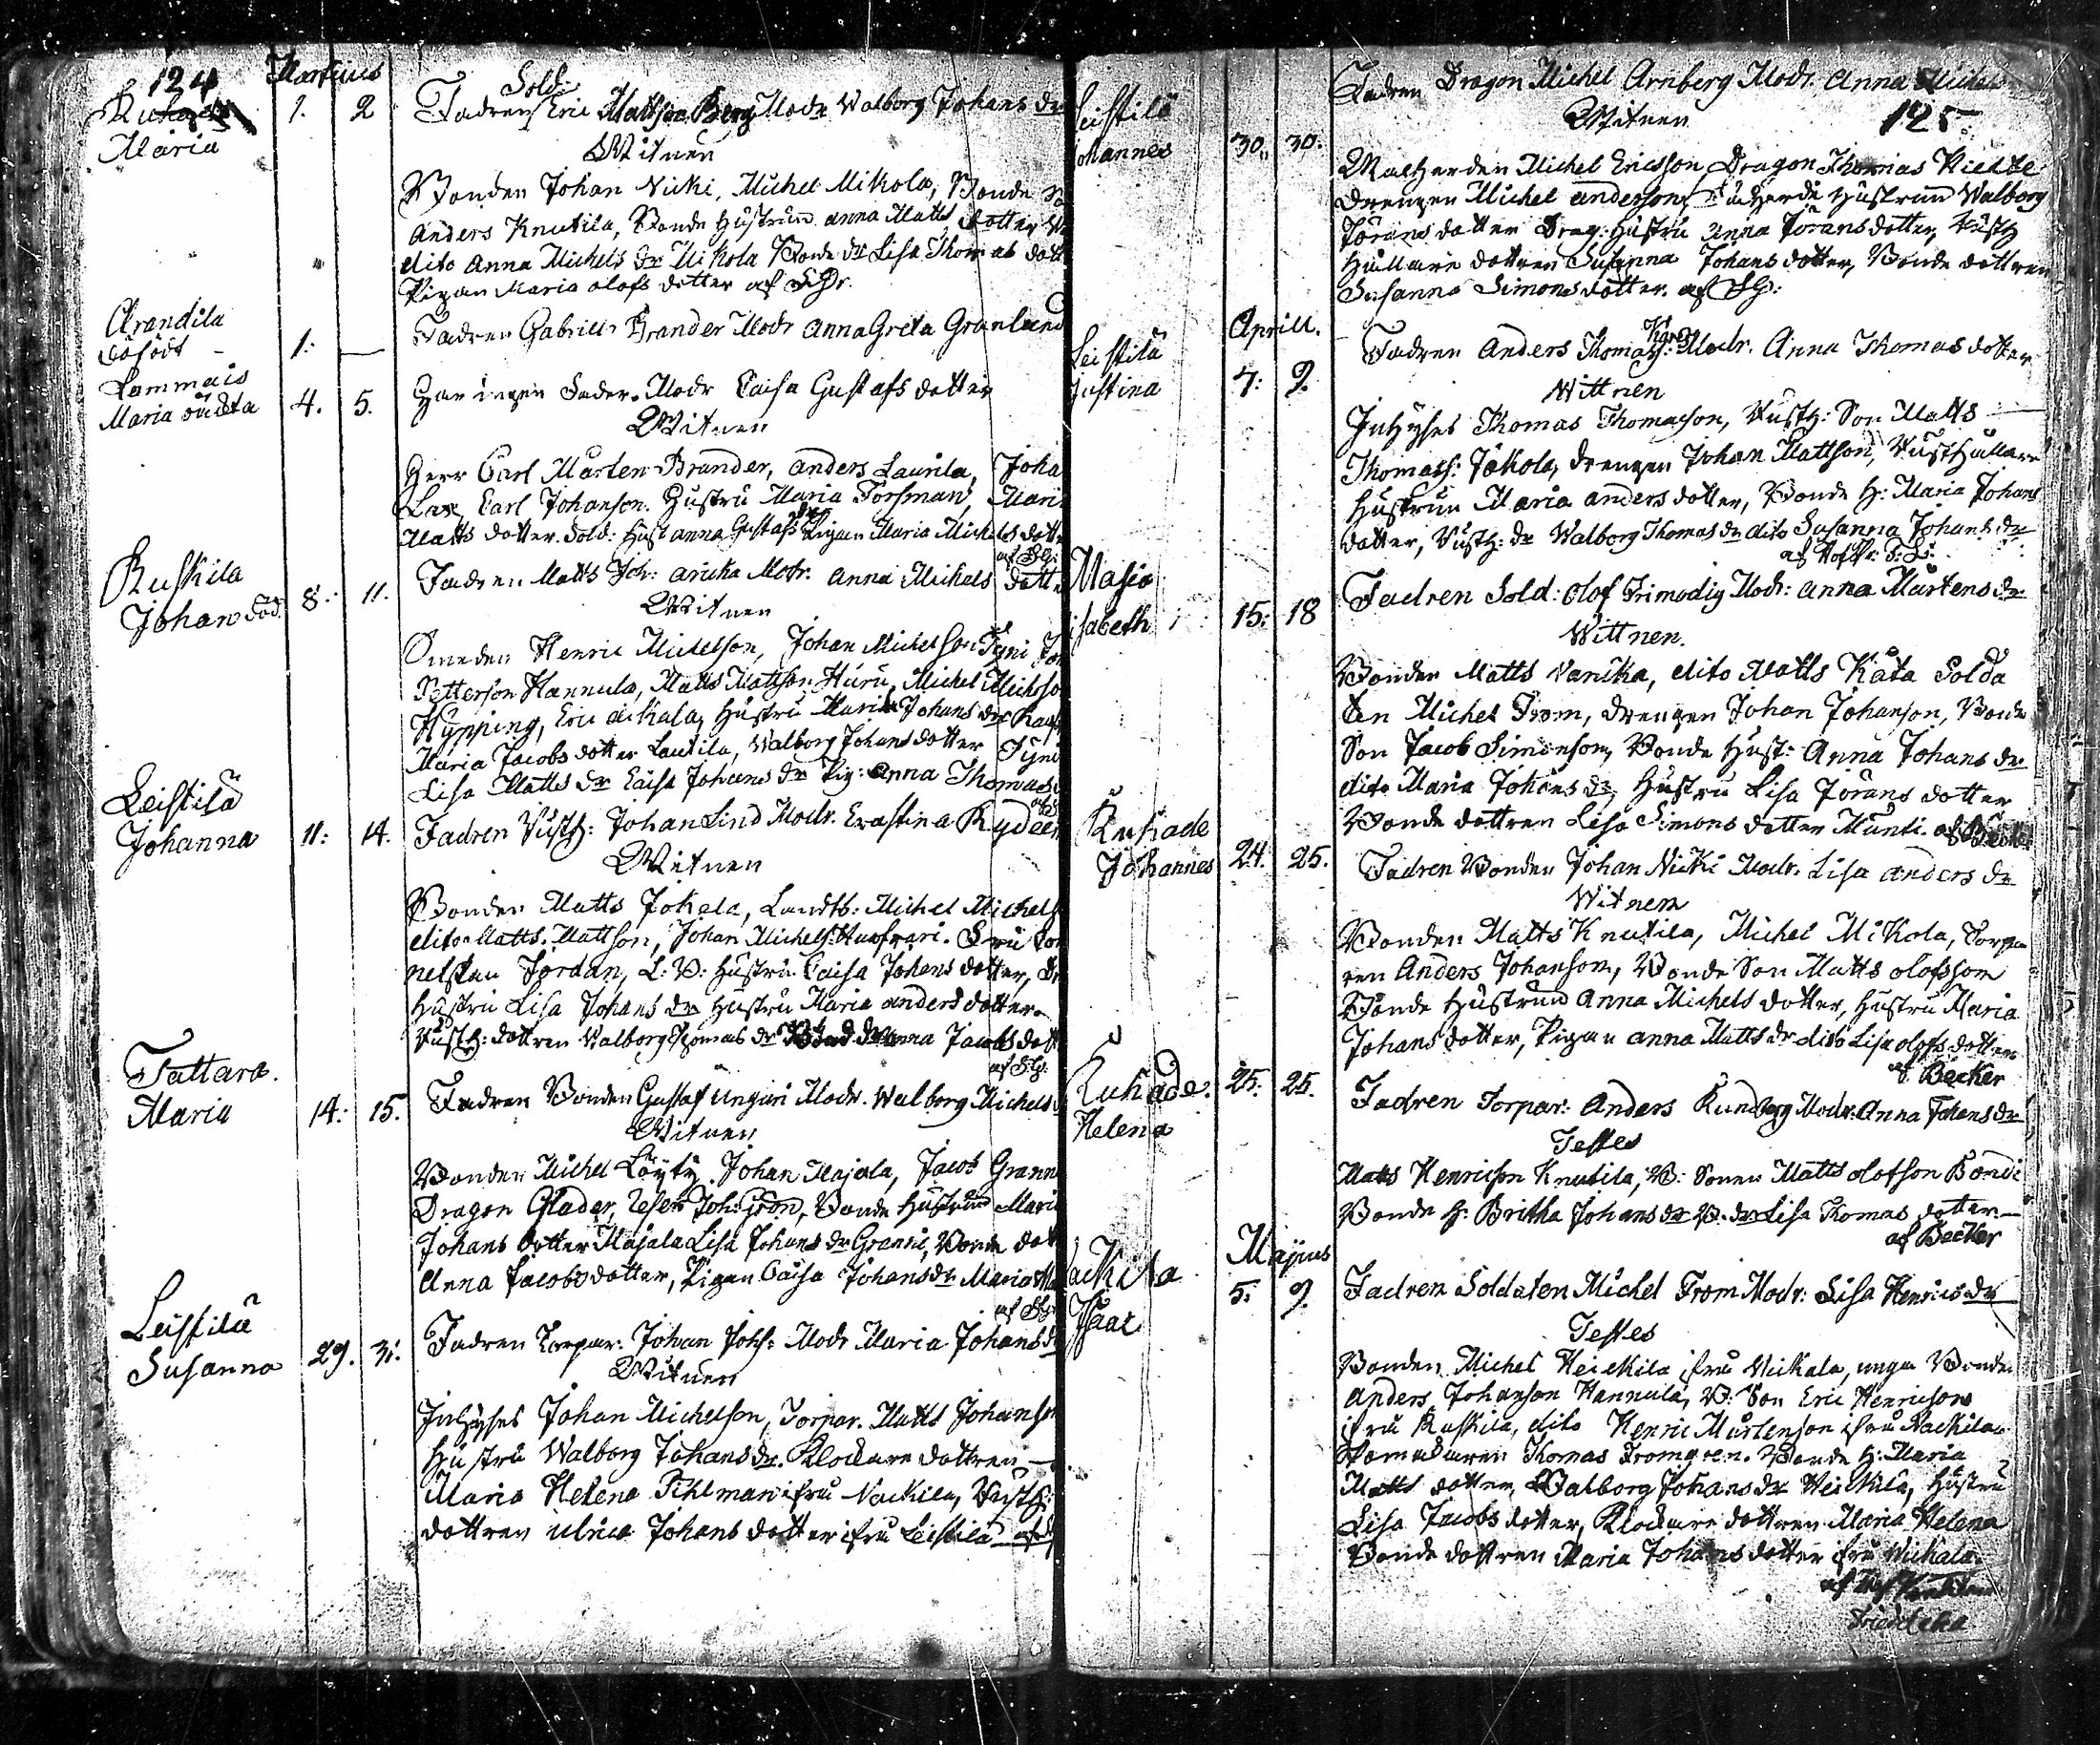 124 Martius
Ruhade 1. 2 Fadren Sold: Eric Mattson Berg Modr Walborg Johans dr
Maria
Witnen
Bonden Johan Nicki, Michel Mikola, Bonde
Anders Knutila, Bonde Hustrun Anna Matts dotter
dito Anna Michels dr Mikola Bonde dr Lisa Thomas dott
Pigan Maria Olofs dotter af
Arandila
Fadren Gabriel Brander Modr Anna Greta Granlund
1: —
Lammais
Maria oäckta 4. 5. Har ingen Fader. Modr Caisa Gustafs dotter
Witnen
Herr Carl Mårten Brander, Anders Laurila, Joha
Lax, Carl Johanson. Hustru Maria Forsman, Mari
Matts dotter. Sold: Hust Anna Gustafs dr Pigan Maria Michels dott
Ruskila
Johan död 8. 11. Fadren Matts Joh: Modr. Anna Michels dott
Witnen
Smeden Henric Michelson, Johan Michelson Tyni
Petterson Hannula, Matts Mattson Huru, Michel Michso
Hypping, Eric Hustru Maria Johans dr
Maria Jacobs dotter Lautila, Walborg Johans dotter Tyni
Lisa Matts dr Caisa Johans dr Pig: Anna Thomas
Leistilä
Johanna 11: 14. Fadren Rusth: Johan Lind Modr. Ernstina Rydeen
Witnen
Bonden Matts Jokela, Landtb: Michel Michels
dito Matts Mattson, Johan Michels: Fru
Jordan, L: B: Hustru Caisa Johans dotter,
Hustru Lisa Johans dr Hustru Maria Anders dotter.
Rusth: dottren Walborg Thomas dr Anna Jacobs dott
Tattara.
Maria 14: 15. Fadren Bonden Gustaf Unguri Modr. Walborg Michels
Witnen
Bonden Michel Löyty. Johan Majala, Jacob Grann
Dragon Glader, Joh: Grön, Bonde Hustrun Mari
Johans dotter Majala Lisa Johans dr Granni, Bonde dott
Anna Jacobs dotter, Pigan Caisa Johans dr Maria
Leistilä
Susanna 29. 31. Fadren Torpar: Johan Johs: Modr Maria Johans dr
Witnen
Inhyses Johan Michelson, Torpar. Matts Johanson
Hustru Walborg Johans dr. Klockare dottren
Maria Helena Pihlman ifrån Nackila, Rusth:
dottren Ulrica Johans dotter ifrån Leistilä
Fadren Dragon Michel Arnberg Modr. Anna Michels
Leistilä
Johannes 30. 30.
Witnen 125.
Michel Ericsson, Dragon Thomas
Drengen Michel Anderson, Hustrun Walborg
Jörans dotter Drag: Hustru Anna Jörans dotter, Rusth
Hållare dottren Susanna Johans dotter, Bonde dottren
Susanna Simons dotter. af
Aprill.
Leistilä Fadren Anders Thomas: Modr. Anna Thomas dotter
Justina 7: 9.
Wittnen
Inhyses Thomas Thomasson, Rusth: Son Matts
Thomass: Jokola, Drengen Johan Mattson, Rusthållare
Hustrun Maria Anders dotter, Bonde H: Maria Johans
dotter, Rusth: dr Walborg Thomas dr dito Susanna Johans dr
Masia Fadren Sold: Olof Frimodig Modr: Anna Mårtens dr
isabeth 15: 18
Wittnen.
Bonden Matts Vanika, dito Matts Kåta Solda
ten Michel From, Drengen Johan Johanson, Bonde
Son Jacob Simonson, Bonde Hust: Anna Johans dr
dito Maria Johans dr, Hustru Lisa Jörans dotter
Bonde dottren Lisa Simons dotter Munti.
Ruhade
Johannes 24. 25. Fadren Bonden Johan Nicki Modr. Lisa Anders dr
Witnen
Bonden Matts Knutila, Michel Mikola, Torpa
ren Anders Johanson, Bonde Son Matts Olofsson
Bonde Hustrun Anna Michels dotter, Hustru Maria
Johans dotter, Pigan Anna Matts dr dito Lisa Olofs dotter
af Becker
Ruhade. 25. 25. Fadren Torpar: Anders Rundberg Modr: Anna Johans dr
Helena
Testes
Matts Henricson Knutila, B: Sonen Matts Olofson Bondi
Bonde H: Britha Johans dr B. dr Lisa Thomas dotter
af Becker
Majus
5. 9. Fadren Soldaten Michel From Modr: Lisa Henrics dr
Isaac
Testes
Bonden Michel Heickila ifrån Nickala, unga Bonden
Anders Johanson Hannula, B: Son Eric Henricson
ifrån Ruskila, dito Henric Mårtenson ifrån Nackila
Thomas Fromgren. Bonde H: Maria
Matts dotter, Walborg Johans dr Heickilä, Hustru
Lisa Jacobs dotter, Klockare dottren Maria Helena
Bonde dottren Maria Johans dotter ifrån Nickala.